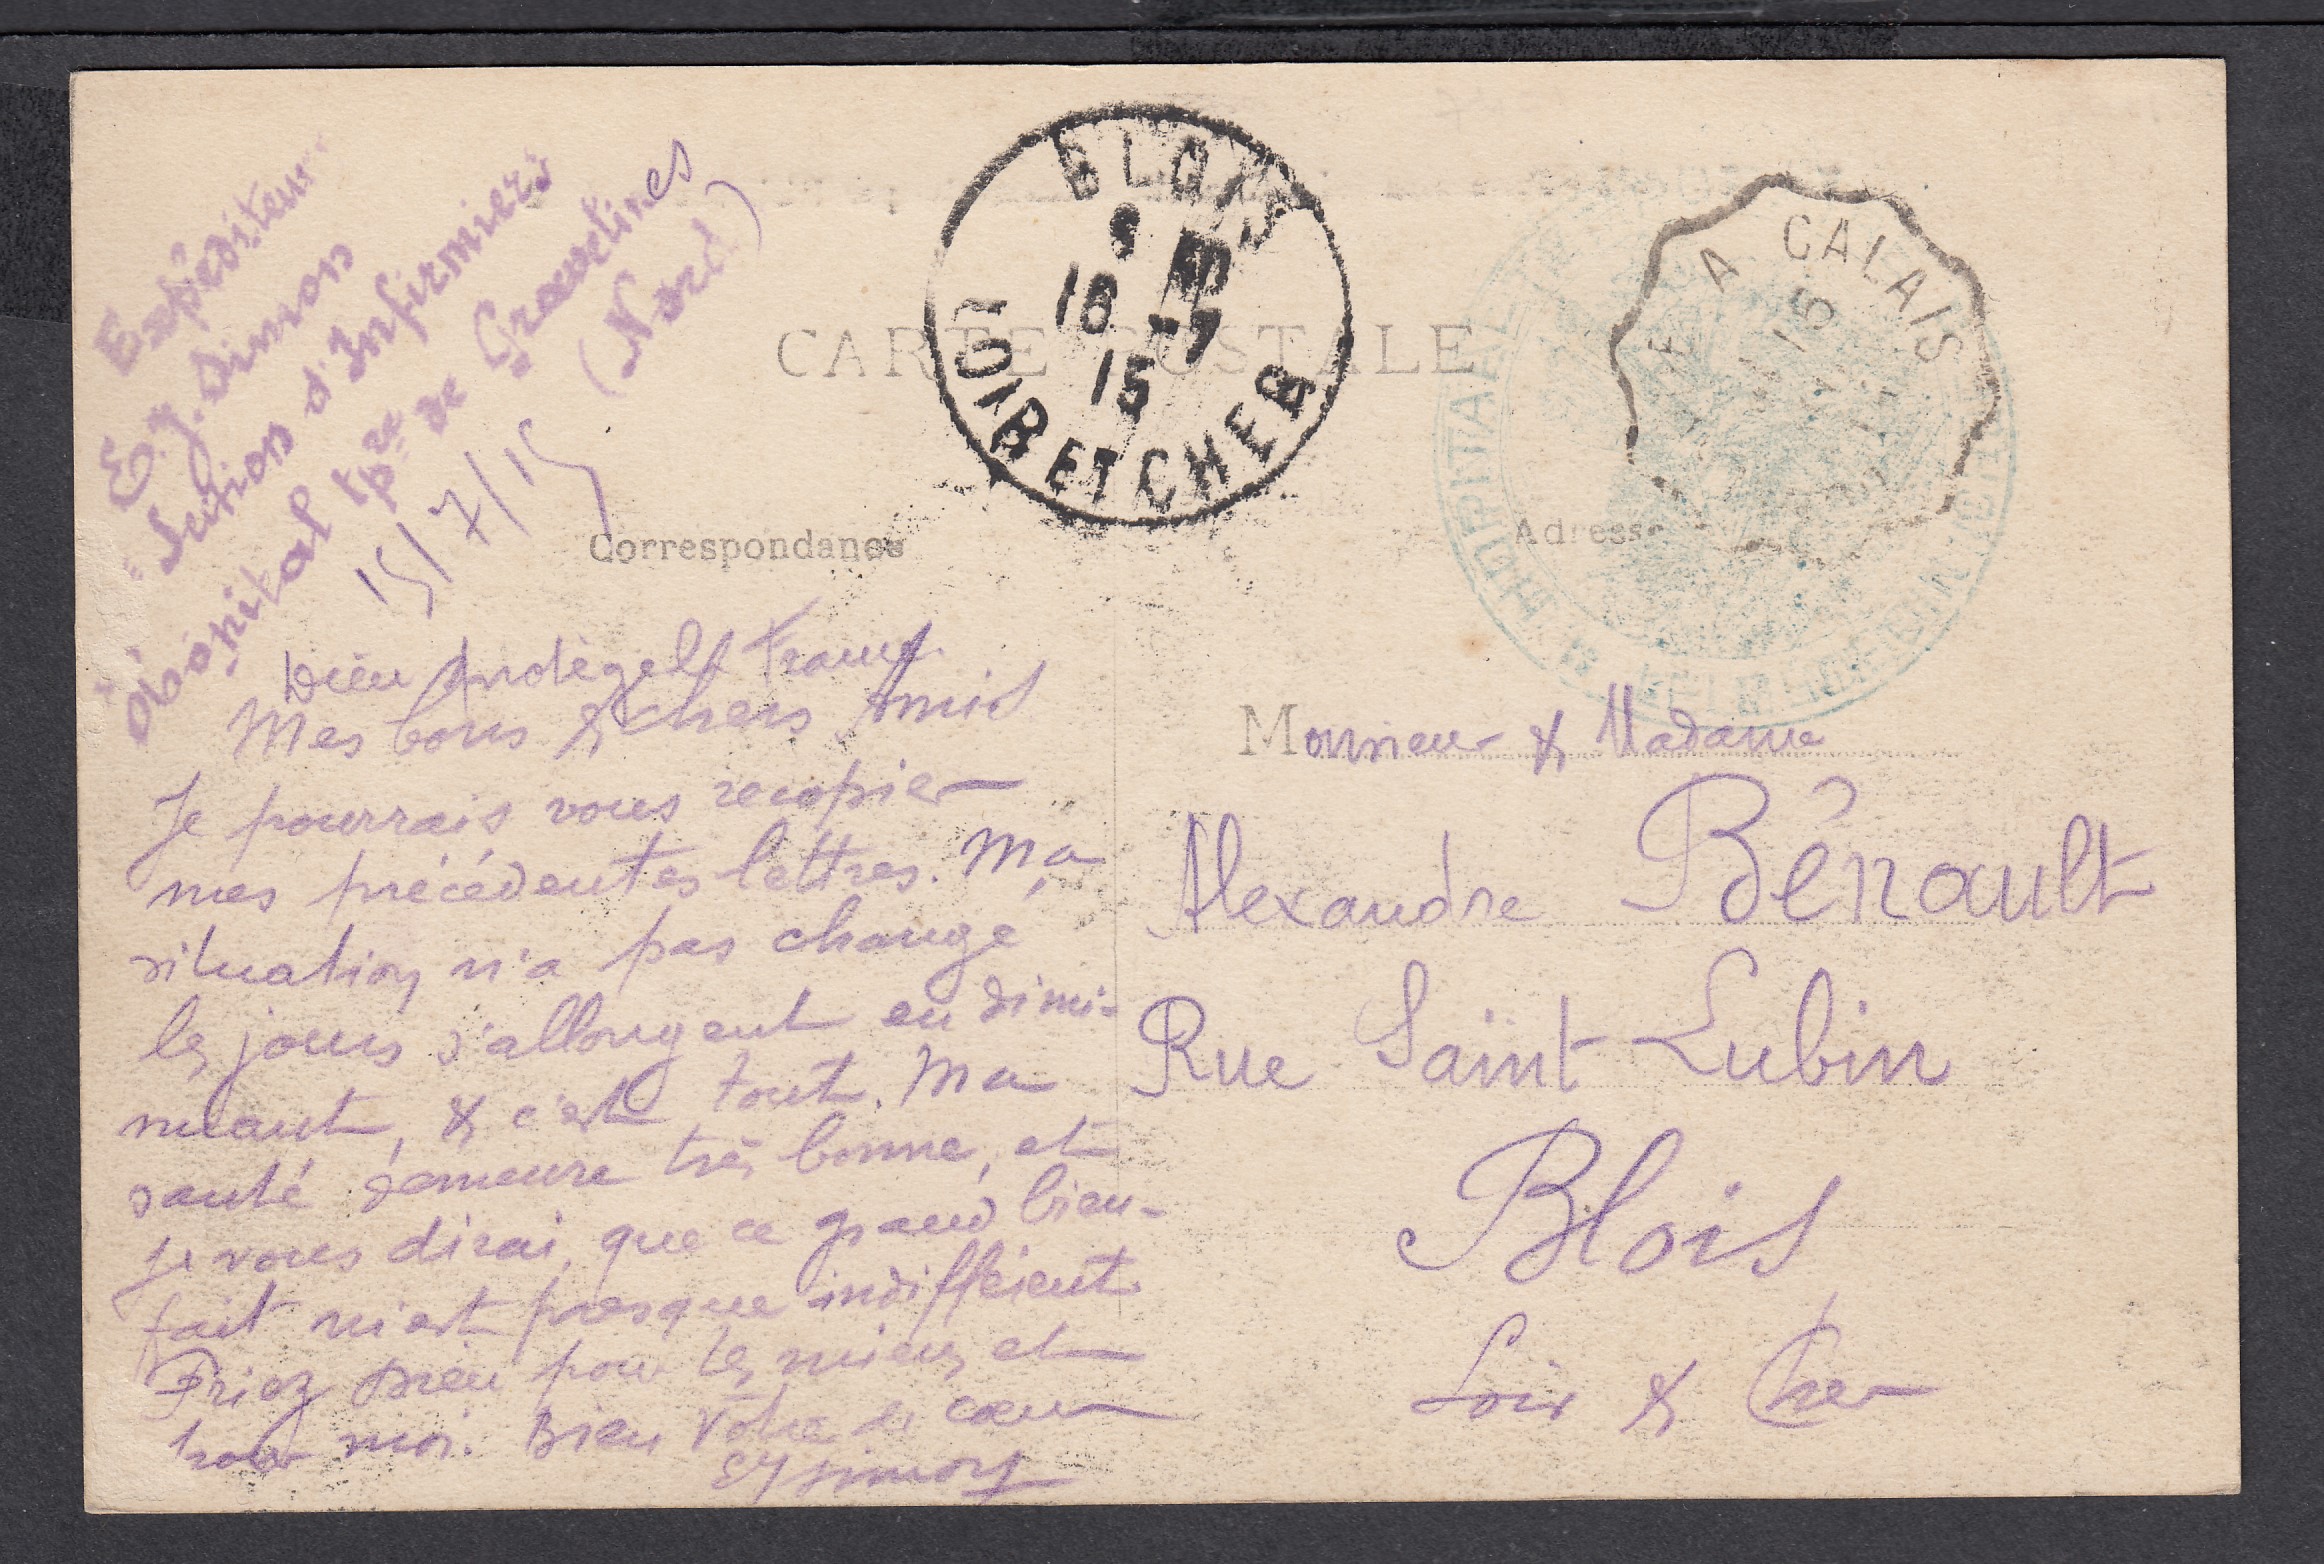 Expéditeur
E.J. Simon
Section d'Infirmiers
Hôpital tpre de Gravelines
(Nord)
15/7/15
BLOIS
18 -7
15
LOIR ET CHER
A CALAIS
15
HOPITAL
CARTE POSTALE
Correspondance
Adresse
Dieu protège la France
Mes bons & chers Amis
Je pourrais vous recopier
mes précédentes lettres. Ma
situation n'a pas changé
les jours s'allongent en dimi-
nuant, & c'est tout. Ma
santé demeure très bonne, et
je vous dirai, que ce grand bien-
fait m'est presque indifférent
Priez Dieu pour les miens et
pour moi. Bien Vôtre de cœur
EJ Simon
Monsieur & Madame
Alexandre Bénault
Rue Saint Lubin
Blois
Loir & Cher